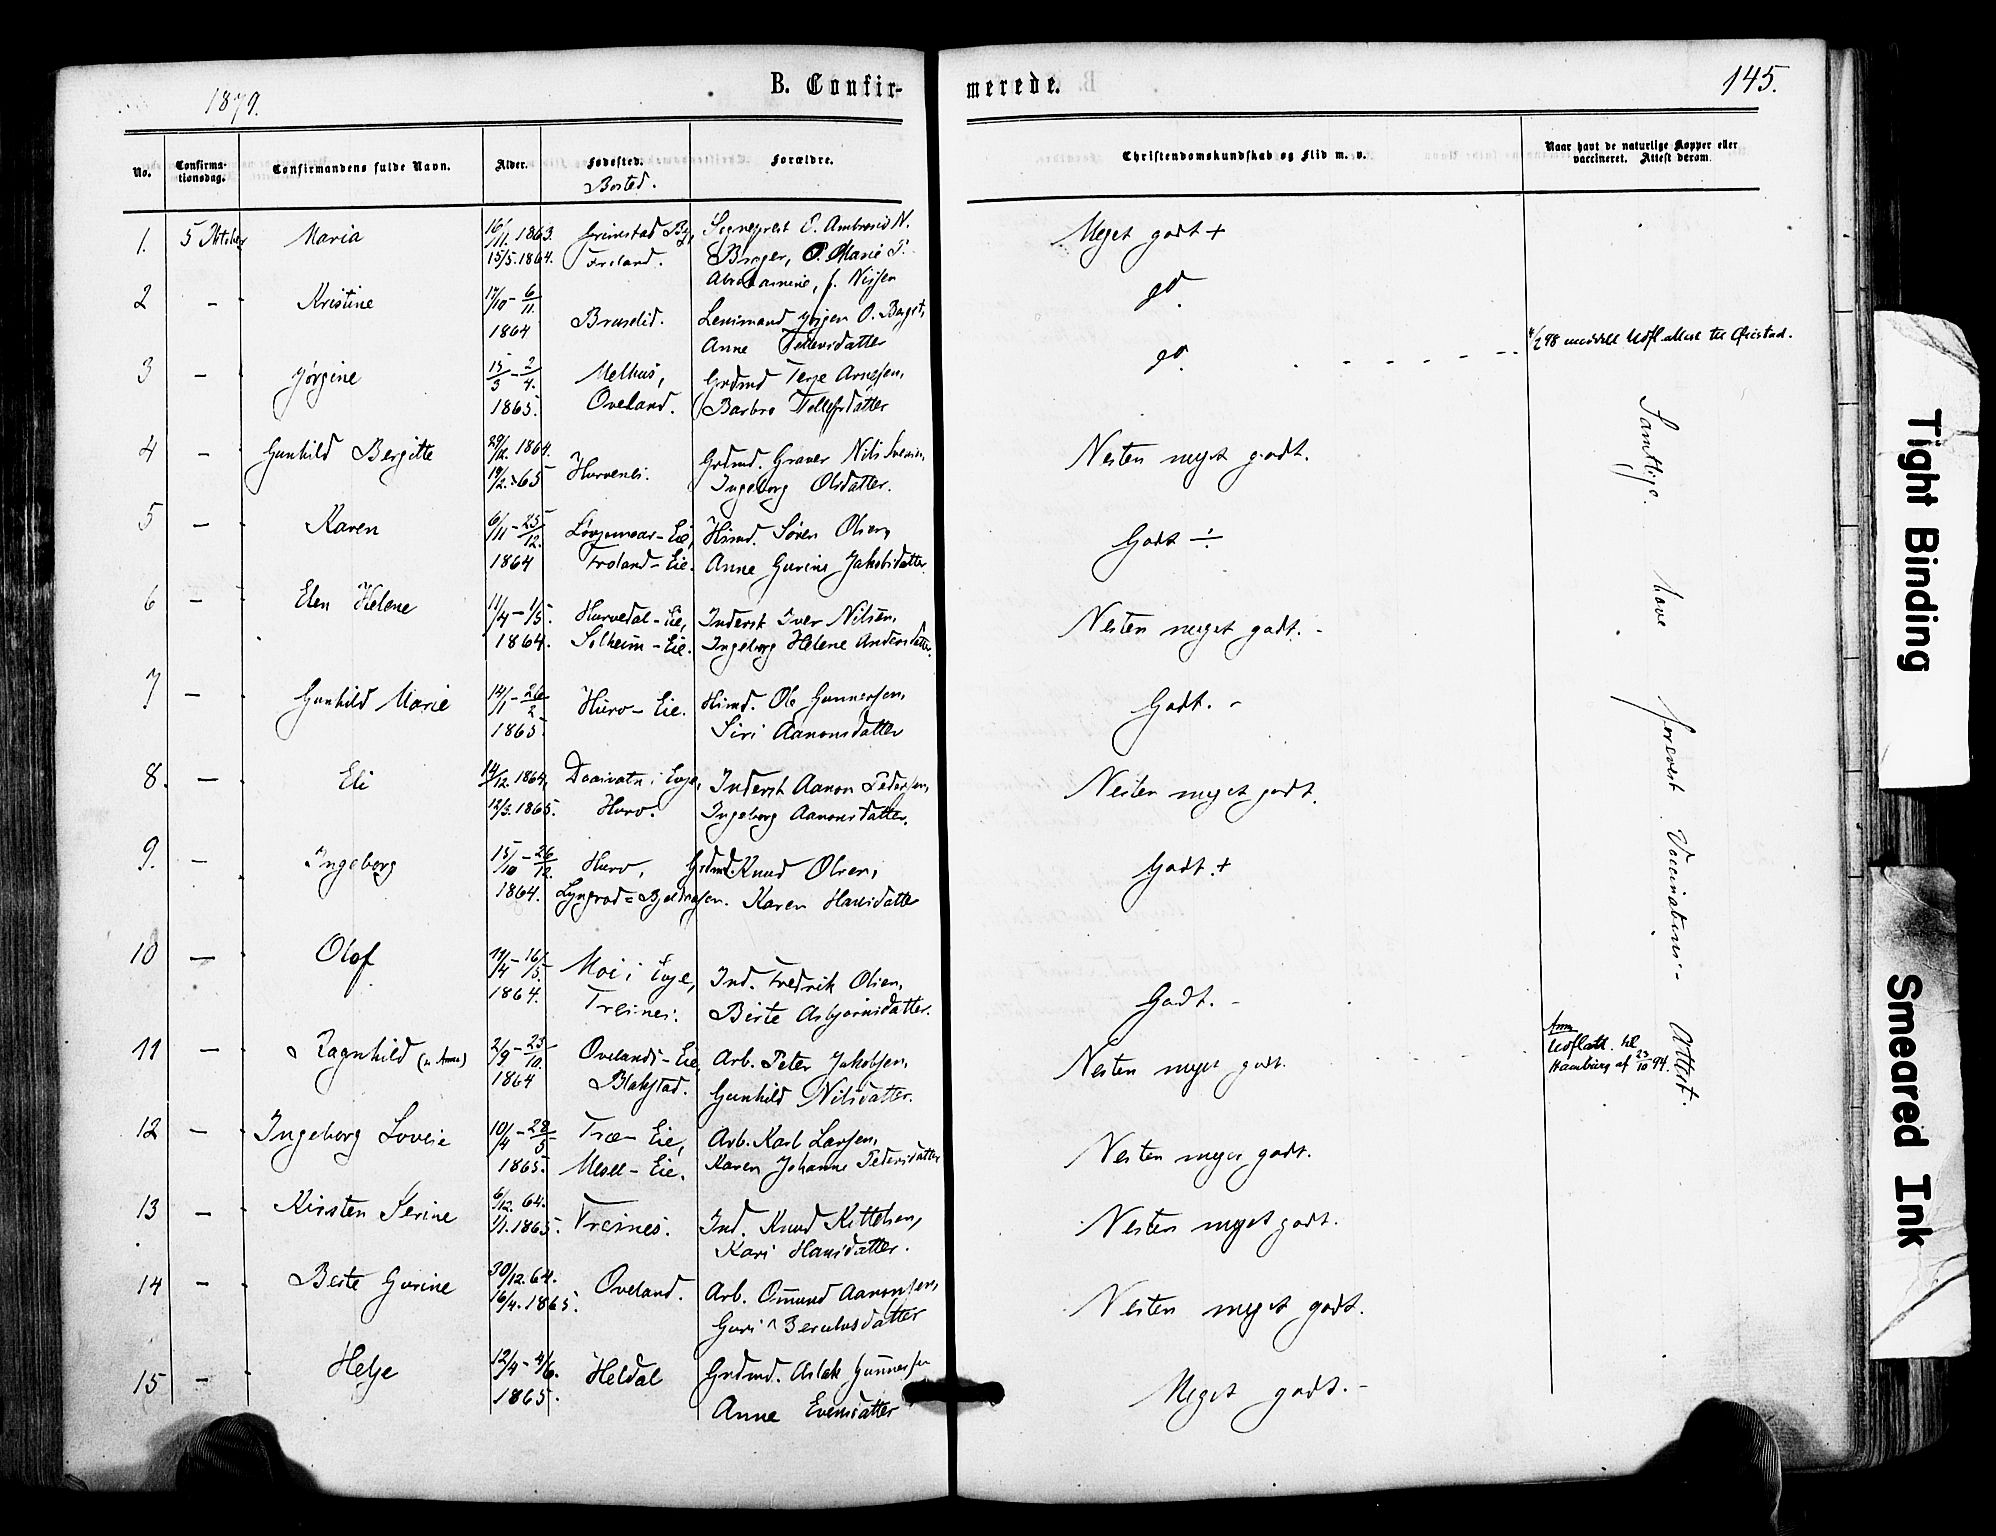 1879.
B. Confir-
merede.
145.
No.
Confirma-
tionsdag.
Confirmandens fulde Navn.
Alder.
Fødested.
Bosted.
Forældre.
Christendomskundskab og Flid m. v.
Naar havt de naturlige Kopper eller
vaccineret. Attest derom.
1. 5 Oktober Maria 16/11. 1863. Grimstad By, Sogneprest E. Ambrosius N. Meget godt +
15/5. 1864. Froland. Marie P.
f. Nissen
2 - Kristine 17/10 - 6/11 Bruselid. Lensmand O. do.
1864 Anne Tellevsdatter
3 - Jørgine 15/3 - 2/4. Melhus, Grdmd Terje Arnesen, do. 98 meddelt Udfl attest til
1865. Oveland. Barbro Tellefsdatter
4 - Gunhild Bergitte 29/12. 1864. Hurvenes. Grdmd. Graver Nils Nesten meget godt.
19/2. 65 Ingeborg Olsdatter.
5 - Karen 6/11 - 25/12. Eie, Husmd. Søren Olsen, Godt ÷
1864 Froland - Eie. Anne Gurine Jakobsdatter
6 - Elen Helene 11/4 - 1/5. Hurvedal - Eie, Inderst Iver Nilsen, Nesten meget godt. -
1864. Solheim - Eie. Ingeborg Helene Andersdatter
7 - Gunhild Marie 14/1 - 26/2 Hurv - Eie. Husmd. Ole Gunnersen, Godt. -
1865. Siri Aanonsdatter
8. - Eli 14/12. 1864, i Evje, Inderst Aanon Pedersen, Nesten meget godt.
12/3. 1865. Hurv. Ingeborg Aanonsdatter.
9. - Ingeborg 15/10 - 26/12. Hurv, Grdmd. Knud Olsen, Godt. +
1864. Karen Hansdatter
10 - Olaf 17/4 - 16/5. Moi i Evje, Ind. Fredrik Olsen, Godt. -
1864. Tresnes. Birte Asbjørnsdatter.
11 - Ragnhild (u. Anne) 2/9 - 23/10. Ovelands - Eie, Arb. Peter Jakobsen, Nesten meget godt.
1864 Blakstad. Gunhild Nilsdatter.
Anm
Udflatt. til
Hamburg af 23/10 94.
12 - Ingeborg Lovise 10/4 - 28/5 Træ - Eie, Arb. Karl Larsen, Nesten meget godt.
1865. Messel - Eie. Karen Johanne Pedersdatter
13 - Kirsten Serine 6/12. 64. Tresnes. Ind. Knud Kittelsen, Nesten meget godt.
1/1. 1865. Kari Hansdatter.
14 - Birte Gurine 30/12. 64. Oveland. Arb. Omund Aanonsen, Nesten meget godt.
16/4. 1865. Guri
15 - Helje 12/4 - 4/6. Heldal Grdmd. Aslak Gunnersen Meget godt. -
1865. Anne Evensdatter
Samtlige have forevist Vaccinations - Attest.
Tight Binding
Smeared Ink